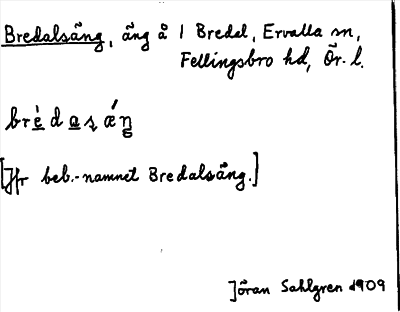 Bredalsäng, äng å 1 Bredal, Ervalla sn,
Fellingsbro hd, Ör. l.
brèdasǽŋ
[Jfr beb.-namnet Bredalsäng.]
Jöran Sahlgren 1909